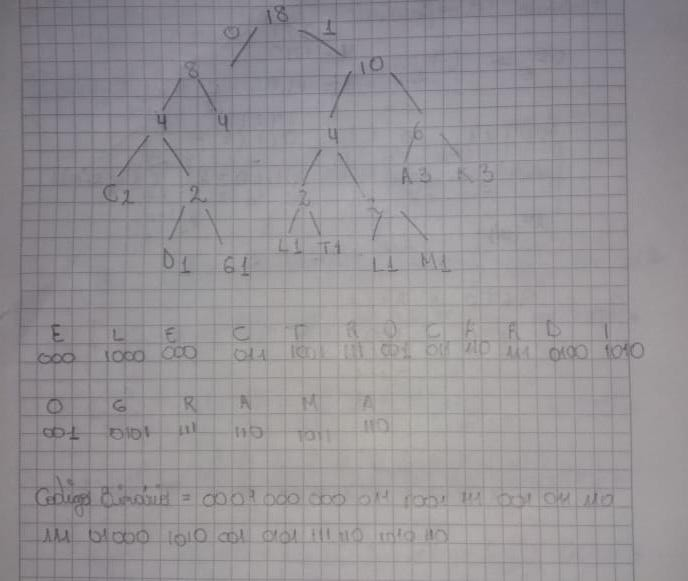 18
0 1
8 10
4 4 4 6
C2 2 2 A3 R3
D1 G1 L1 T1 I1 M1
E L E C T R O C A R D I
000 1000 000 011 1001 111 001 011 110 111 0100 1010
O G R A M A
001 0101 111 110 1011 110
Codigo Binario = 0001000 000 011 1001 111 001 011 110
111 01000 1010 001 0101 111 110